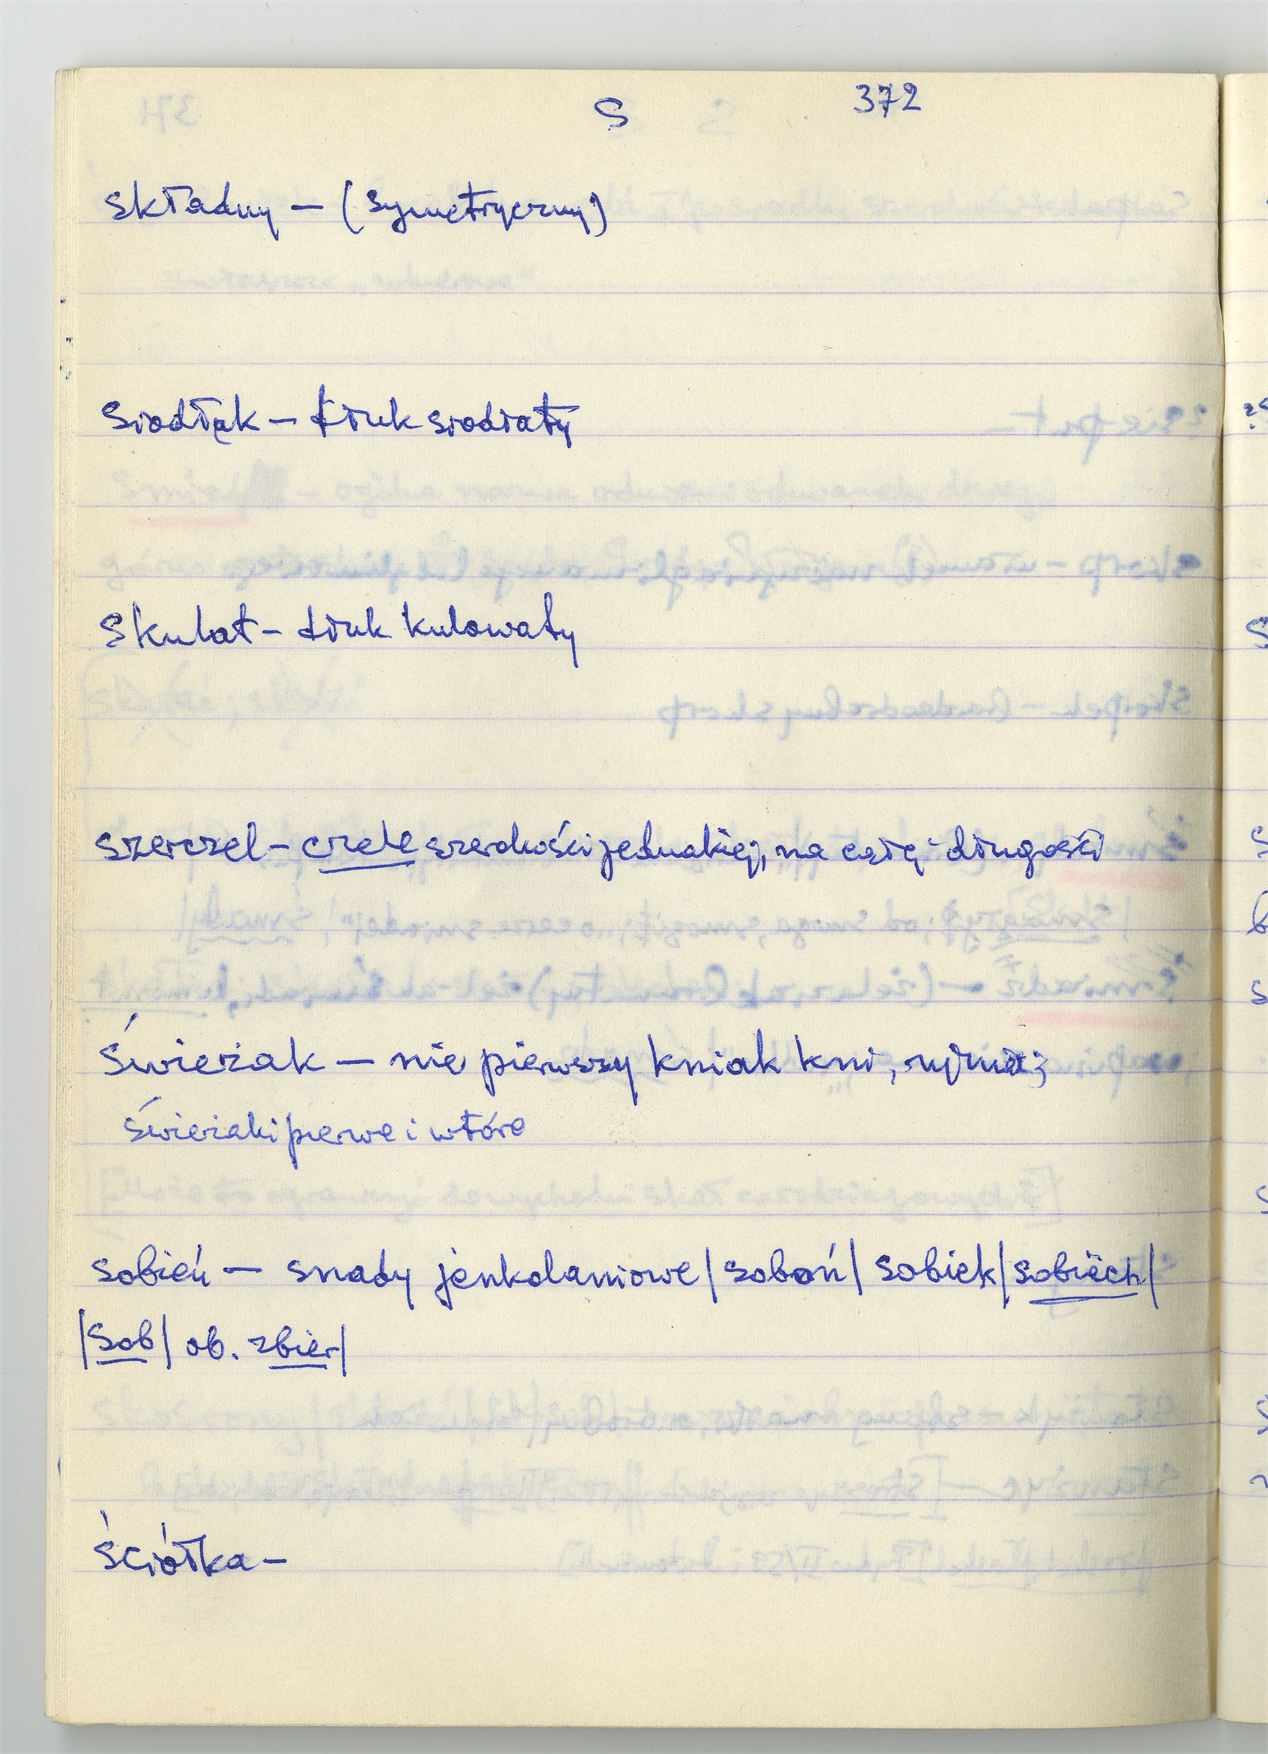 S 372
składny – (symetryczny)
siodłak – siodłaty
skulat – kulowaty
szerczel – czele szerokości jednakiej, na całej długości
świeżak – nie pierwszy kniak kni,
świeżaki pierwe i wtóre
sobień – snady jenkolaniowe | soboń | sobiek | sobiech |
| Sob | ob. zbier |
ściółka –